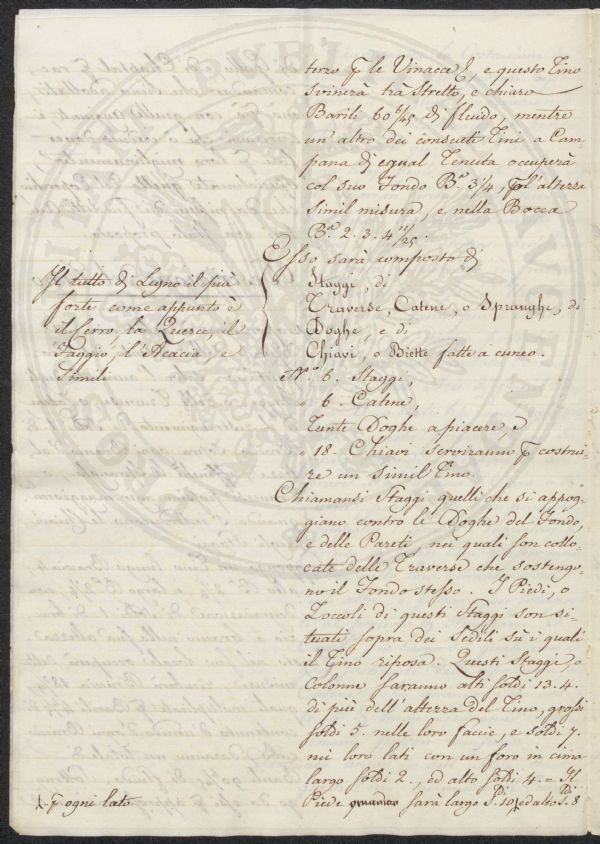 terzo p le Vinacce, e questo Tino
svinerà tra stretto, e chiaro
Barili 60 di fluido, mentre
un' altro dei consueti Tini a Cam-
pana di egual Tenuta occuperà
col suo Fondo B.ª 3/4, p l'altezza
simil misura, e nella Bocca
B.ª 2. 3. 4 11/25.
Esso sarà composto di
Staggi, di
Traverse, Catene, o Spranghe, di
Doghe, e di
Chiavi, o Biette fatte a cuneo.
Il tutto di Legno il più
forte come appunto è
il Cerro, la Querce, il
Faggio, l'Acacia, e
Simili
N.º 6. Staggi,
" 6. Catene,
Tante Doghe a piacere, e
" 18. Chiavi serviranno p costrui-
re un simil Tino.
Chiamansi Staggi quelli che si appog-
giano contro le Doghe del Fondo,
e delle Pareti, nei quali son collo-
cate delle Traverse che sostengo-
no il Fondo stesso. I Piedi, o
Zoccoli di questi Staggi son si-
tuati sopra dei Sedili sù i quali
il Tino riposa. Questi Staggi, o
Colonne saranno alti soldi 13. 4.
di più dell'altezza del Tino, grossi
soldi 5. nelle loro faccie, e soldi 7.
nei loro lati con un foro in cima
largo soldi 2., ed alto soldi 4. = Il
Piede sarà largo S.di 10 ed alto S.di 8
p ogni lato